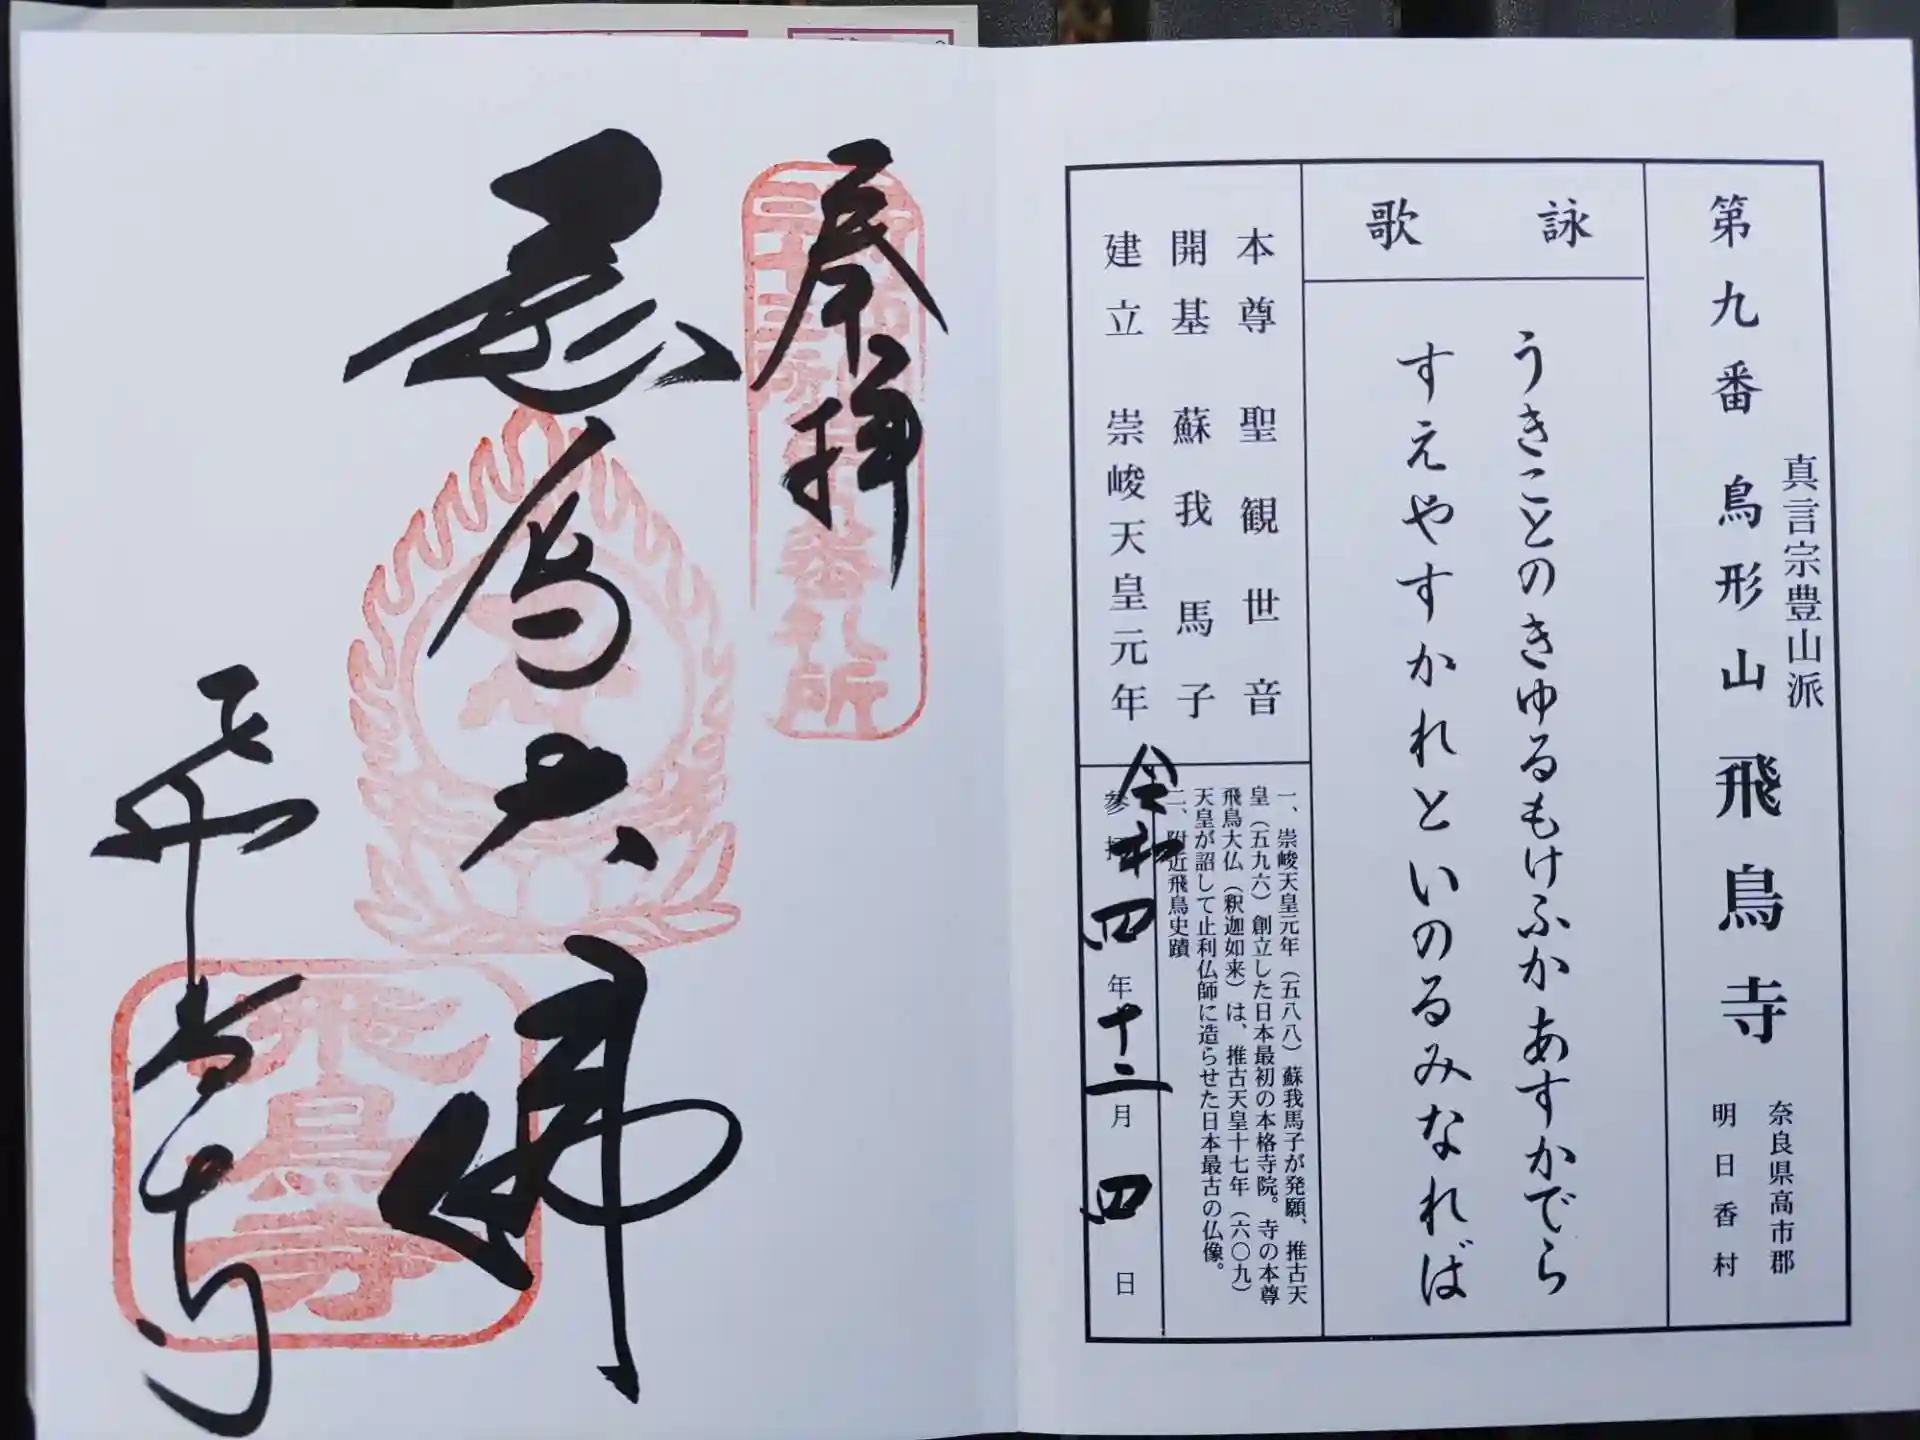 第九番 鳥形山 飛鳥寺
真言宗豊山派
奈良県高市郡
明日香村
詠歌
うきことのきゆるもけふかあすかでら
すえやすかれといのるみなれば
本尊 聖観世音
開基 蘇我馬子
建立 崇峻天皇元年
一、崇峻天皇元年（五八八）蘇我馬子が発願、推古天
皇（五九六）創立した日本最初の本格寺院。寺の本尊
飛鳥大仏（釈迦如来）は、推古天皇十七年（六〇九）
天皇が詔して止利仏師に造らせた日本最古の仏像。
二、附近飛鳥史蹟
参拝 令和四年十二月四日
奉拝
飛鳥大佛
飛鳥寺
番札所
飛鳥寺